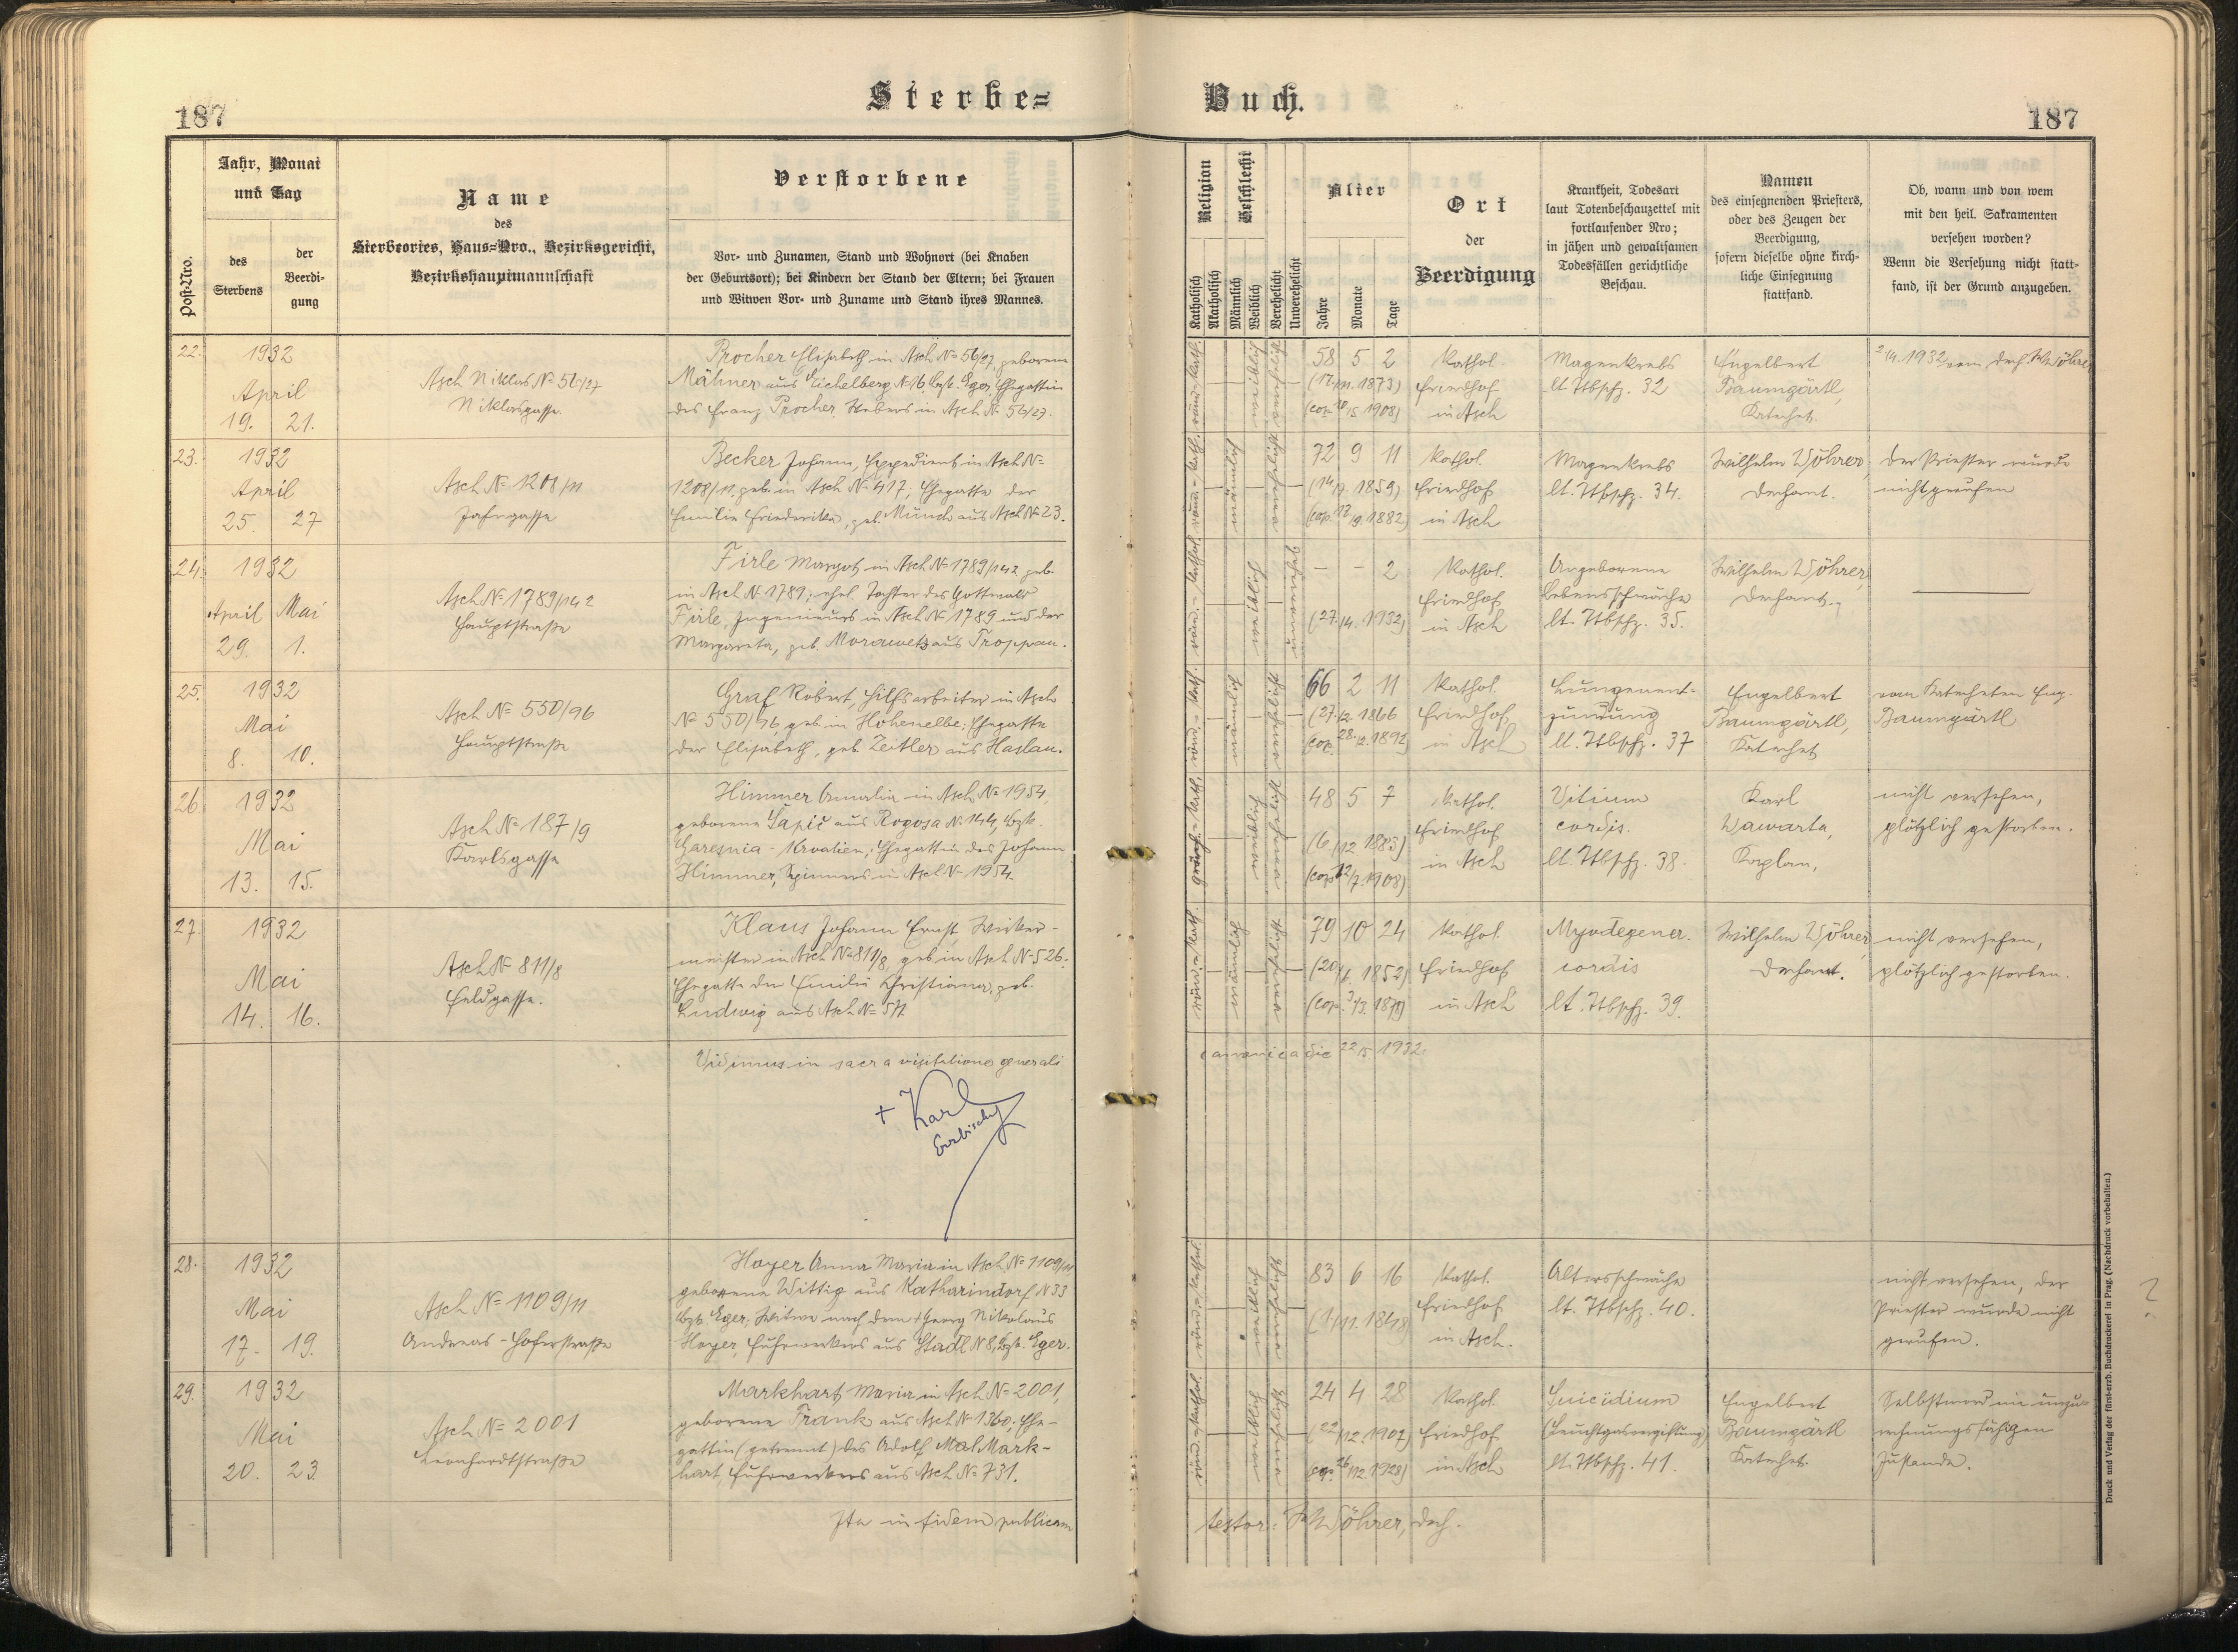 187
Sterbe=
Buch.
187
Post-Nro.
Jahr, Monat und Tag
des Sterbens
der Beerdi-gung
Name
des
Sterbeortes, Haus=Nro., Bezirksgericht,
Bezirkshauptmannschaft
Verstorbene
Vor- und Zunamen, Stand und Wohnort (bei Knaben
der Geburtsort); bei Kindern der Stand der Eltern; bei Frauen
und Witwen Vor- und Zuname und Stand ihres Mannes.
Religion
Katholisch
Akatholisch
Geschlecht
Männlich
Weiblich
Verehelicht
Unverehelicht
Alter
Jahre
Monate
Tage
Ort
der
Beerdigung
Krankheit, Todesart
laut Totenbeschauzettel mit
fortlaufender Nro;
in jähen und gewaltsamen
Todesfällen gerichtliche
Beschau.
Namen
des einsegnenden Priesters,
oder des Zeugen der
Beerdigung,
sofern dieselbe ohne kirch-
liche Einsegnung
stattfand.
Ob, wann und von wem
mit den heil. Sakramenten
versehen worden?
Wenn die Versehung nicht statt-
fand, ist der Grund anzugeben.
22. 1932
April
19. 21.
Asch Niklas № 56/27
Niklasgasse.
Procher Elisabeth in Asch № 56/27, geborene
Mähner aus Eichelberg № 16 Bzk. Eger, Ehegattin
des Franz Procher, Webers in Asch № 56/27.
röm.-kath.
weiblich
verehelicht
58 5 2
(17/11. 1873)
(cop. 18/5 1908)
Kathol.
Friedhof
in Asch
Magenkrebs
lt. Ttbschz. 32
Engelbert
Baumgärtl,
Katechet.
2/4. 1932 vom Dech. W. Wöhrer
23. 1932
April
25. 27
Asch № 1208/11
Jahngasse
Becker Johann, Expedient in Asch №
1208/11, geb. in Asch № 417; Ehegatte der
Emilie Friederike, geb. Münch aus Asch № 23.
röm.-kath.
männlich
verehelicht
72 9 11
(14/7. 1859)
(cop. 17/9. 1882)
Kathol.
Friedhof
in Asch
Magenkrebs
lt. Ttbschz. 34.
Wilhelm Wöhrer,
Dechant.
Der Priester wurde
nicht gerufen
24. 1932
April Mai
29. 1.
Asch № 1789/142
Hauptstraße
Firle Margot, in Asch № 1789/142 geb.
in Asch № 1789; ehel. Tochter des Gottwald
Firle, Ingenieurs in Asch № 1789 und der
Margareta, geb. Morawetz aus Troppau.
röm.-kathol.
weiblich
unverehel.
– – 2
(27./4. 1932)
Kathol.
Friedhof
in Asch
Angeborene
Lebensschwäche
lt. Ttbschz. 35.
Wilhelm Wöhrer,
Dechant.
25. 1932
Mai
8. 10.
Asch № 550/96
Hauptstraße
Graf Robert, Hilfsarbeiter in Asch
№ 550/96, geb. in Hohenelbe; Ehegatte
der Elisabeth, geb. Zeitler aus Haslau.
röm.-kath.
männlich
verehelicht
66 2 11
(27./2. 1866
(cop. 28./2. 1892)
Kathol.
Friedhof
in Asch
Lungenent-
zündung
lt. Ttbschz. 37
Engelbert
Baumgärtl,
Katechet
vom Katecheten Eng.
Baumgärtl
26. 1932
Mai
13. 15.
Asch № 187/9
Karlsgasse
Himmer Amalia in Asch № 1954,
geborene Šapić aus Rogosa № 144, Bzk.
Garesnia - Kroatien; Ehegattin des Johann
Himmer, Spinners in Asch № 1954.
griech.-kath.
weiblich
verehelicht
48 5 7
(6./12 1883)
(cop. 12/7. 1908)
Kathol.
Friedhof
in Asch
Vitium
cordis.
lt. Ttbschz. 38.
Karl
Wawarta,
Kaplan,
nicht versehen,
plötzlich gestorben.
27. 1932
Mai
14. 16.
Asch № 811/8
Feldgasse.
Klaus Johann Ernst, Wirker-
meister in Asch № 811/8, geb. in Asch № 526.
Ehegatte der Emilie Christiana, geb.
Ludwig aus Asch № 577
röm.-kath.
männlich
verehelicht
79 10 24
(20/6. 1852)
(cop. 3/3. 1878)
Kathol.
Friedhof
in Asch
Myodegener.
cordis
lt. Ttbschz. 39.
Wilhelm Wöhrer
Dechant.
nicht versehen,
plötzlich gestorben.
Vidimus in sacra visitatione generali
canonica die 22/5 1932.
+ Karl
Erzbischof
28. 1932
Mai
17. 19.
Asch № 1109/11
Andreas-Hoferstraße
Hoyer Anna Maria in Asch № 1109/11
geborene Wittig aus Katharindorf № 33
Bzk. Eger, Witwe nach dem † Georg Nikolaus
Hoyer, Fuhrwerkers aus Stadl № 8, Bzk. Eger.
röm.-kathol.
weiblich
verehelicht
83 6 16
(1/11. 1848)
Kathol.
Friedhof
in Asch.
Altersschwäche
lt. Ttbschz. 40.
nicht versehen, der
Priester wurde nicht
gerufen.
?
29. 1932
Mai
20. 23.
Asch № 2001
Leonhardtstraße
Markhart Maria in Asch № 2001,
geborene Frank aus Asch № 1360; Ehe-
gattin (getrennt) des Adolf Mal. Mark-
hart, Fuhrwerkers aus Asch № 731.
röm.-kathol.
weiblich
verehelicht
24 4 28
(22/12. 1907)
cop. 26/12. 1928)
Kathol.
Friedhof
in Asch
Suicidium
(Leuchtgasvergiftung)
lt. Ttbschz. 41.
Engelbert
Baumgärtl
Katechet.
Selbstmord im unzu-
rechnungsfähigen
Zustande.
Ita in fidem publicam
testor: W. Wöhrer, Dech.
Druck und Verlag der fürst-erzb. Buchdruckerei in Prag. (Nachdruck vorbehalten.)